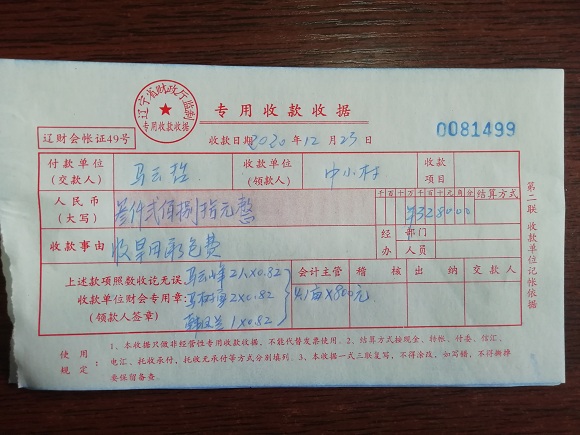 辽宁省财政厅监制
专用收款收据
专用收款收据
0081499
辽财会帐证49号
收款日期 2020年12月23日
付款单位
(交款人)
马云
收款单位
(领款人)
中小村
收款
项目
人民币
(大写)
叁仟贰佰捌拾元整
千 百 十 万 千 百 十 元 角 分
结算方式
¥328000
收款事由
收旱田承包费
经办
部门
人员
上述款项照数收讫无误
收款单位财会专用章:
(领款人签章)
马云峰 2人×0.82
2×0.82
1×0.82
会计主管
稽 核
出 纳
交 款 人
亩×800元
第二联 收款单位记帐依据
使用规定:
1、本收据只做非经营性专用收款收据,不能代替发票使用。2、结算方式按现金、转帐、付委、信汇、
电汇、托收承付,托收无承付等方式分别填列。3、本收据一式三联复写,不得涂改,如写错,不得撕掉
要保留备查。